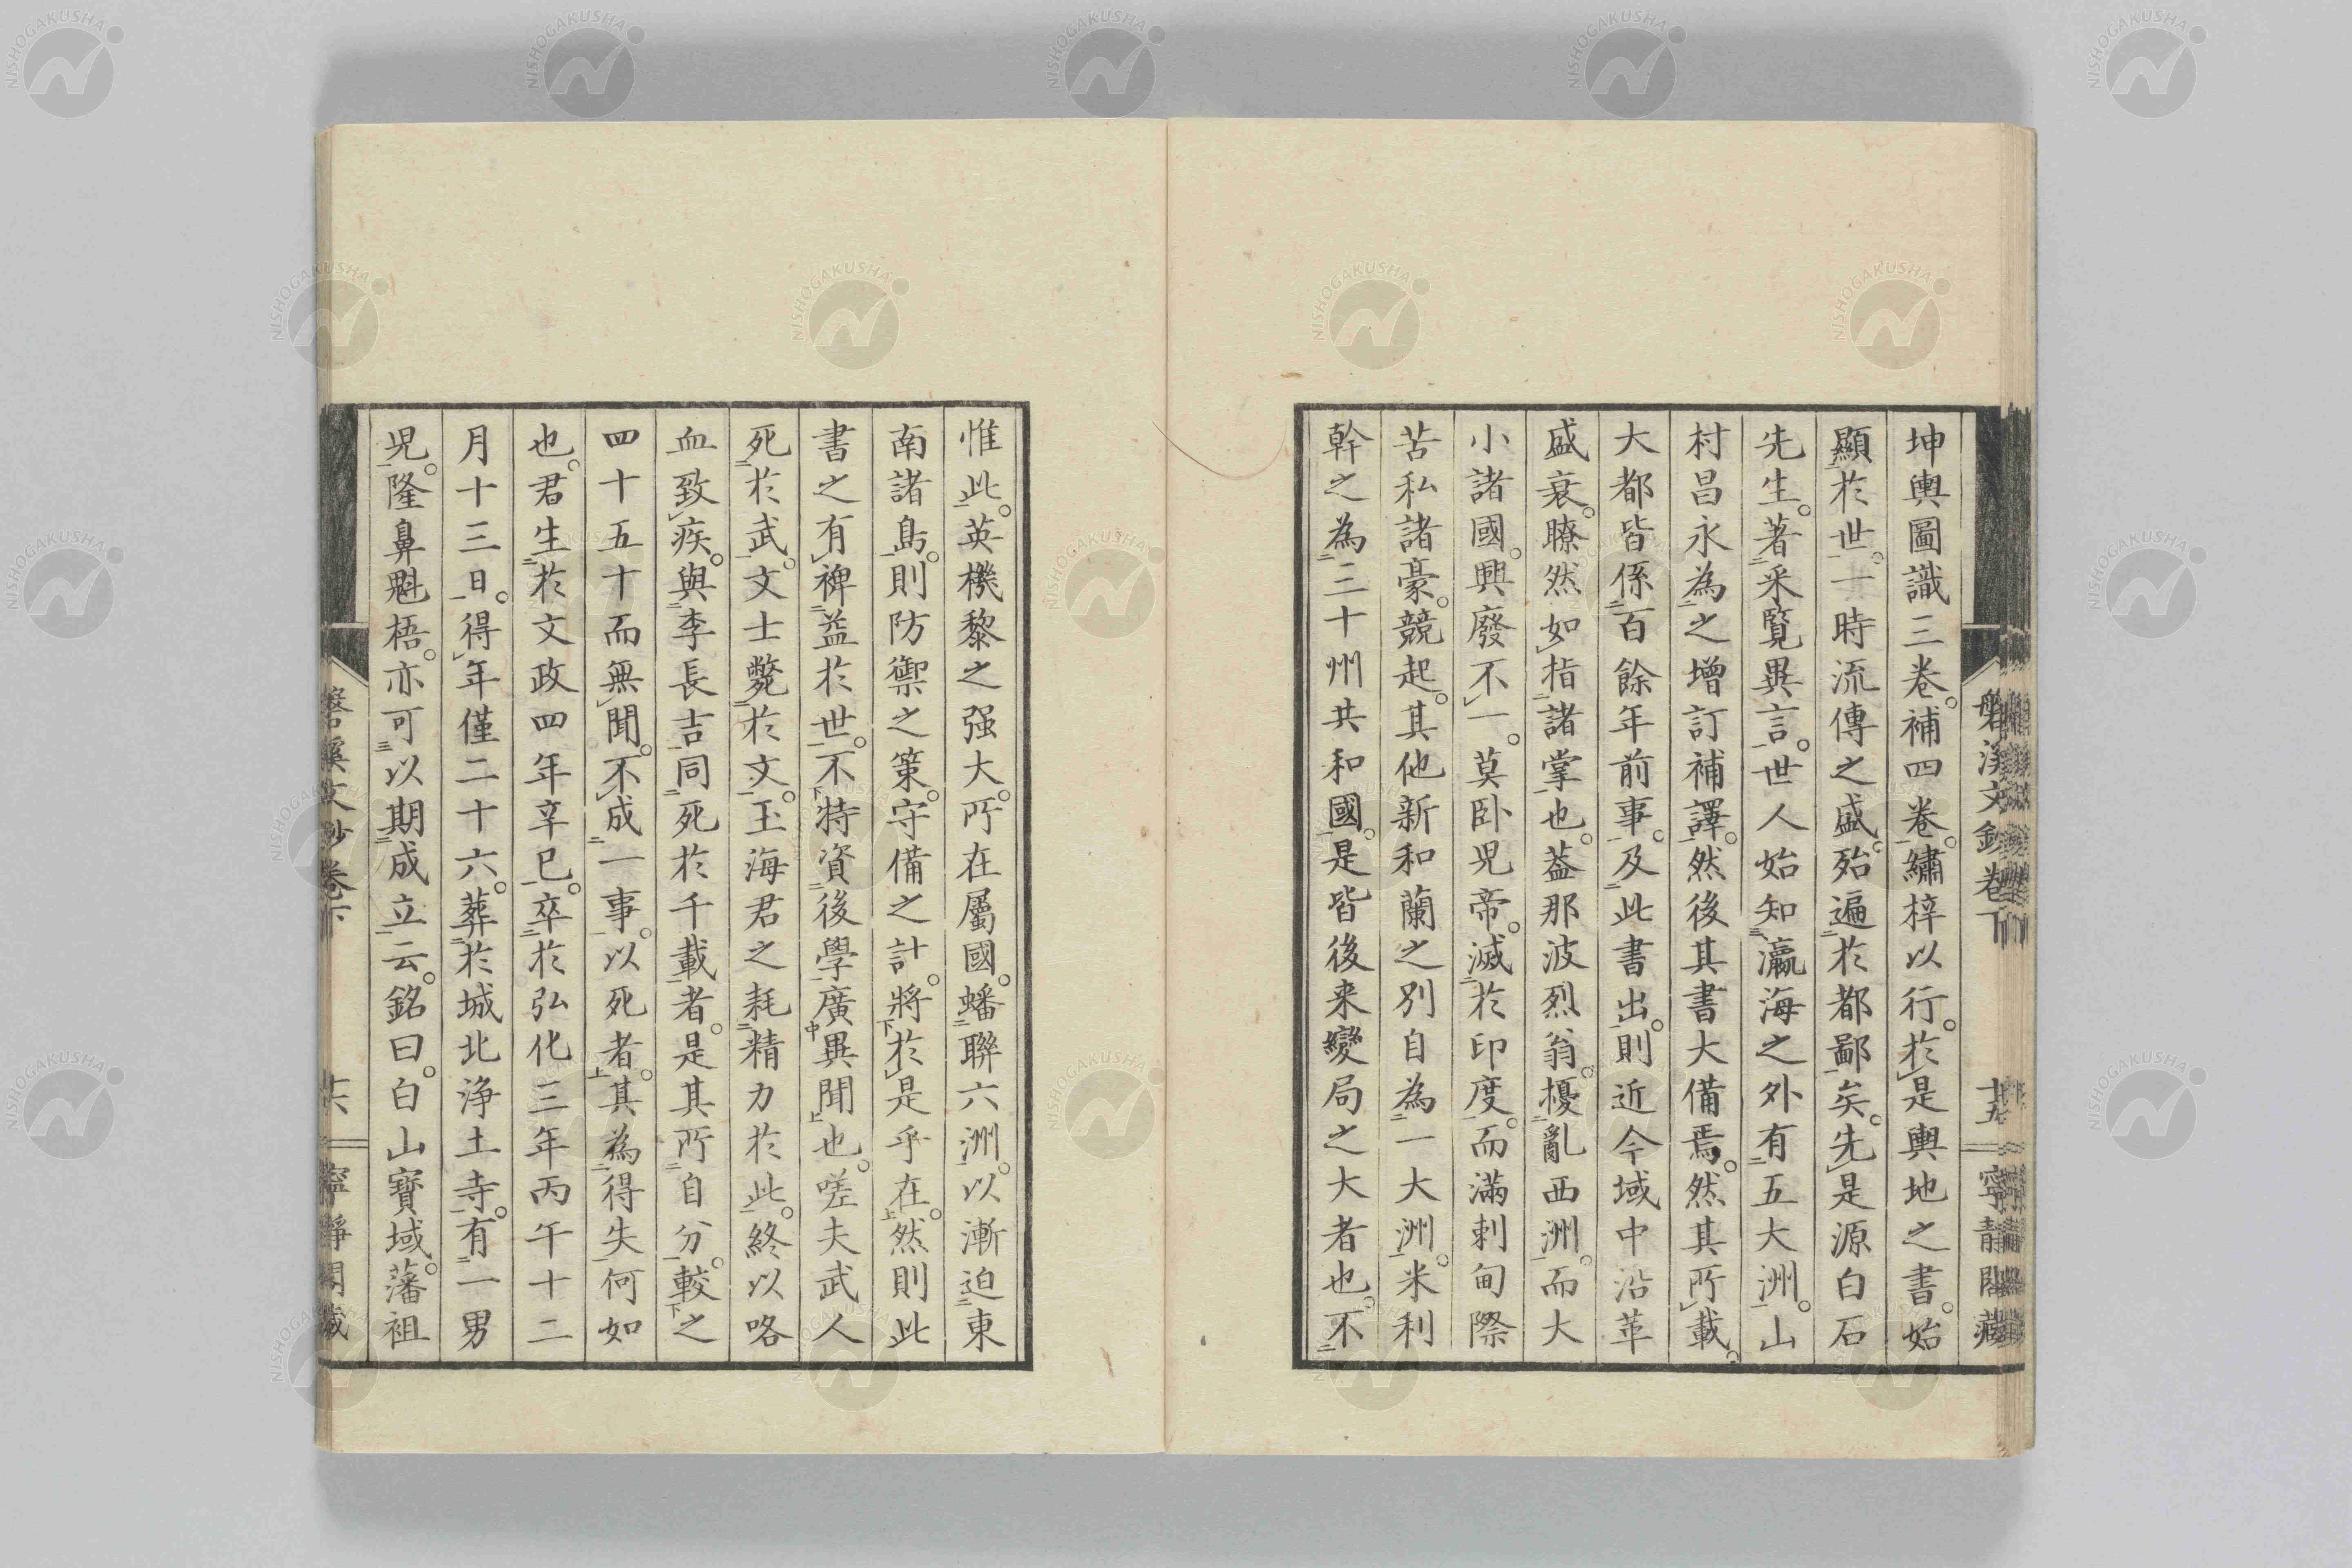 磐溪文鈔卷下 十五 寧靜閣藏
坤輿圖識三卷。補四卷。繡梓以行。於是輿地之書。始
顯於世。一時流傳之盛。殆遍於都鄙矣。先是源白石
先生。著采覽異言。世人始知瀛海之外有五大洲。山
村昌永為之增訂補譯。然後其書大備焉。然其所載。
大都皆係百餘年前事。及此書出。則近今域中沿革
盛衰。瞭然如指諸掌也。蓋那波烈翁。擾亂西洲。而大
小諸國。興廢不一。莫臥兒帝。滅於印度。而滿剌甸際
苦私諸豪。競起。其他新和蘭之別自為一大洲。米利
幹之為三十州共和國。是皆後来變局之大者也。不
惟此。英機黎之强大。所在屬國。蟠聯六洲。以漸迫東
南諸島。則防禦之策。守備之計。將於是乎在。然則此
書之有裨益於世。不特資後學廣異聞也。嗟夫武人
死於武。文士斃於文。玉海君之耗精力於此。終以咯
血致疾。與李長吉同死於千載者。是其所自分。較之
四十五十而無聞。不成一事。以死者。其為得失何如
也。君生於文政四年辛巳。卒於弘化三年丙午十二
月十三日。得年僅二十六。葬於城北浄土寺。有一男
児。隆鼻魁梧。亦可以期成立云。銘曰。白山寶域。藩祖
磐溪文鈔卷下 十六 寧靜閣藏
NISHOGAKUSHA